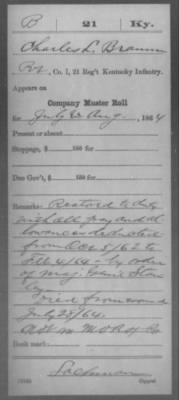 B 21 Ky.
Charles L. Branum
Pvt, Co. I, 21 Reg't Kentucky Infantry.
Appears on
Company Muster Roll
for July & Aug, 1864
Present or absent
Stoppage, $ 100 for
Due Gov't, $ 100 for
Remarks: Restord to duty
with all pay and al
lowances
from Oct 5/62 to
Feb 4/64 by order
of Maj. Stan
ley
Died from wound
July 28/64.
Book mark:
Copyist.